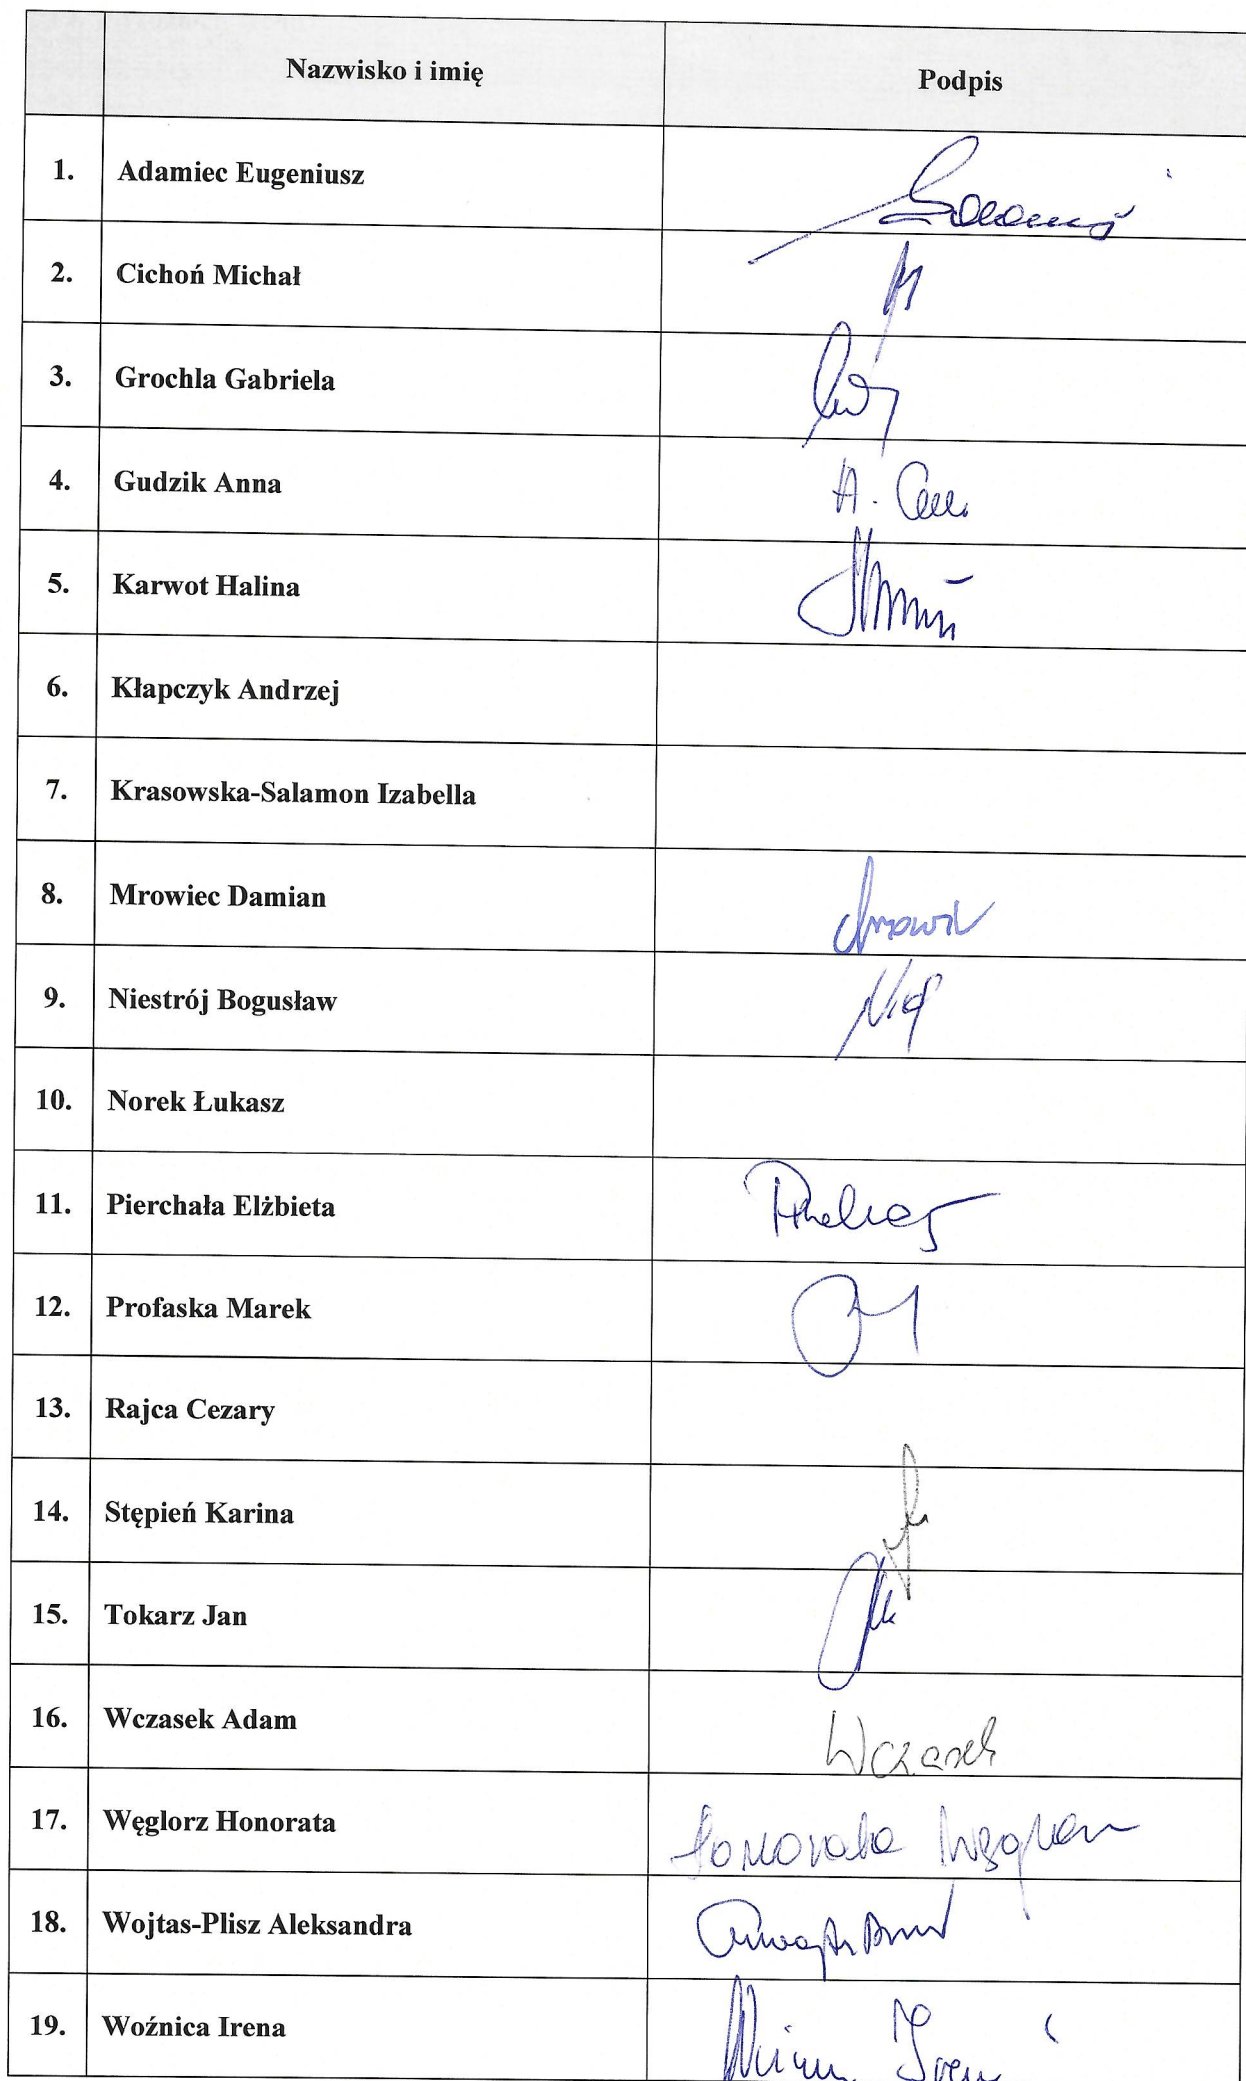 Nazwisko i imię Podpis
1. Adamiec Eugeniusz
2. Cichoń Michał
3. Grochla Gabriela
4. Gudzik Anna A.
5. Karwot Halina
6. Kłapczyk Andrzej
7. Krasowska-Salamon Izabella
8. Mrowiec Damian
9. Niestrój Bogusław
10. Norek Łukasz
11. Pierchała Elżbieta
12. Profaska Marek
13. Rajca Cezary
14. Stępień Karina
15. Tokarz Jan
16. Wczasek Adam Wczasek
17. Węglorz Honorata Honorata
18. Wojtas-Plisz Aleksandra
19. Woźnica Irena